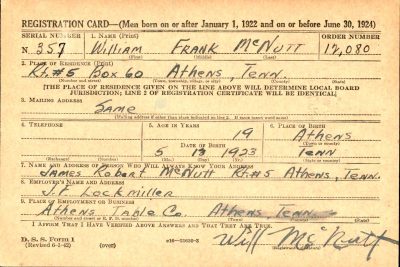 REGISTRATION CARD—(Men born on or after January 1, 1922 and on or before June 30, 1924)
SERIAL NUMBER 1. NAME (Print) ORDER NUMBER
N 357 William Frank McNutt 12,080
(First) (Middle) (Last)
2. PLACE OF RESIDENCE (Print)
Rt.#5 Box 60 Athens, Tenn.
(Number and street) (Town, township, village, or city) (County) (State)
[THE PLACE OF RESIDENCE GIVEN ON THE LINE ABOVE WILL DETERMINE LOCAL BOARD
JURISDICTION; LINE 2 OF REGISTRATION CERTIFICATE WILL BE IDENTICAL]
3. MAILING ADDRESS
Same
4. TELEPHONE 5. AGE IN YEARS 6. PLACE OF BIRTH
19 Athens
DATE OF BIRTH
5 13 1923 Tenn
(Exchange) (Number) (Mo.) (Day) (Yr.) (State or country)
7. NAME AND ADDRESS OF PERSON WHO WILL ALWAYS KNOW YOUR ADDRESS
James Robert McNutt Rt.#5 Athens, Tenn.
8. EMPLOYER'S NAME AND ADDRESS
J.F. Lockmiller
9. PLACE OF EMPLOYMENT OR BUSINESS
Athens Table Co. Athens, Tenn.
I AFFIRM THAT I HAVE VERIFIED ABOVE ANSWERS AND THAT THEY ARE TRUE.
D. S. S. Form 1
(Revised 6-9-42) (over) Will McNutt